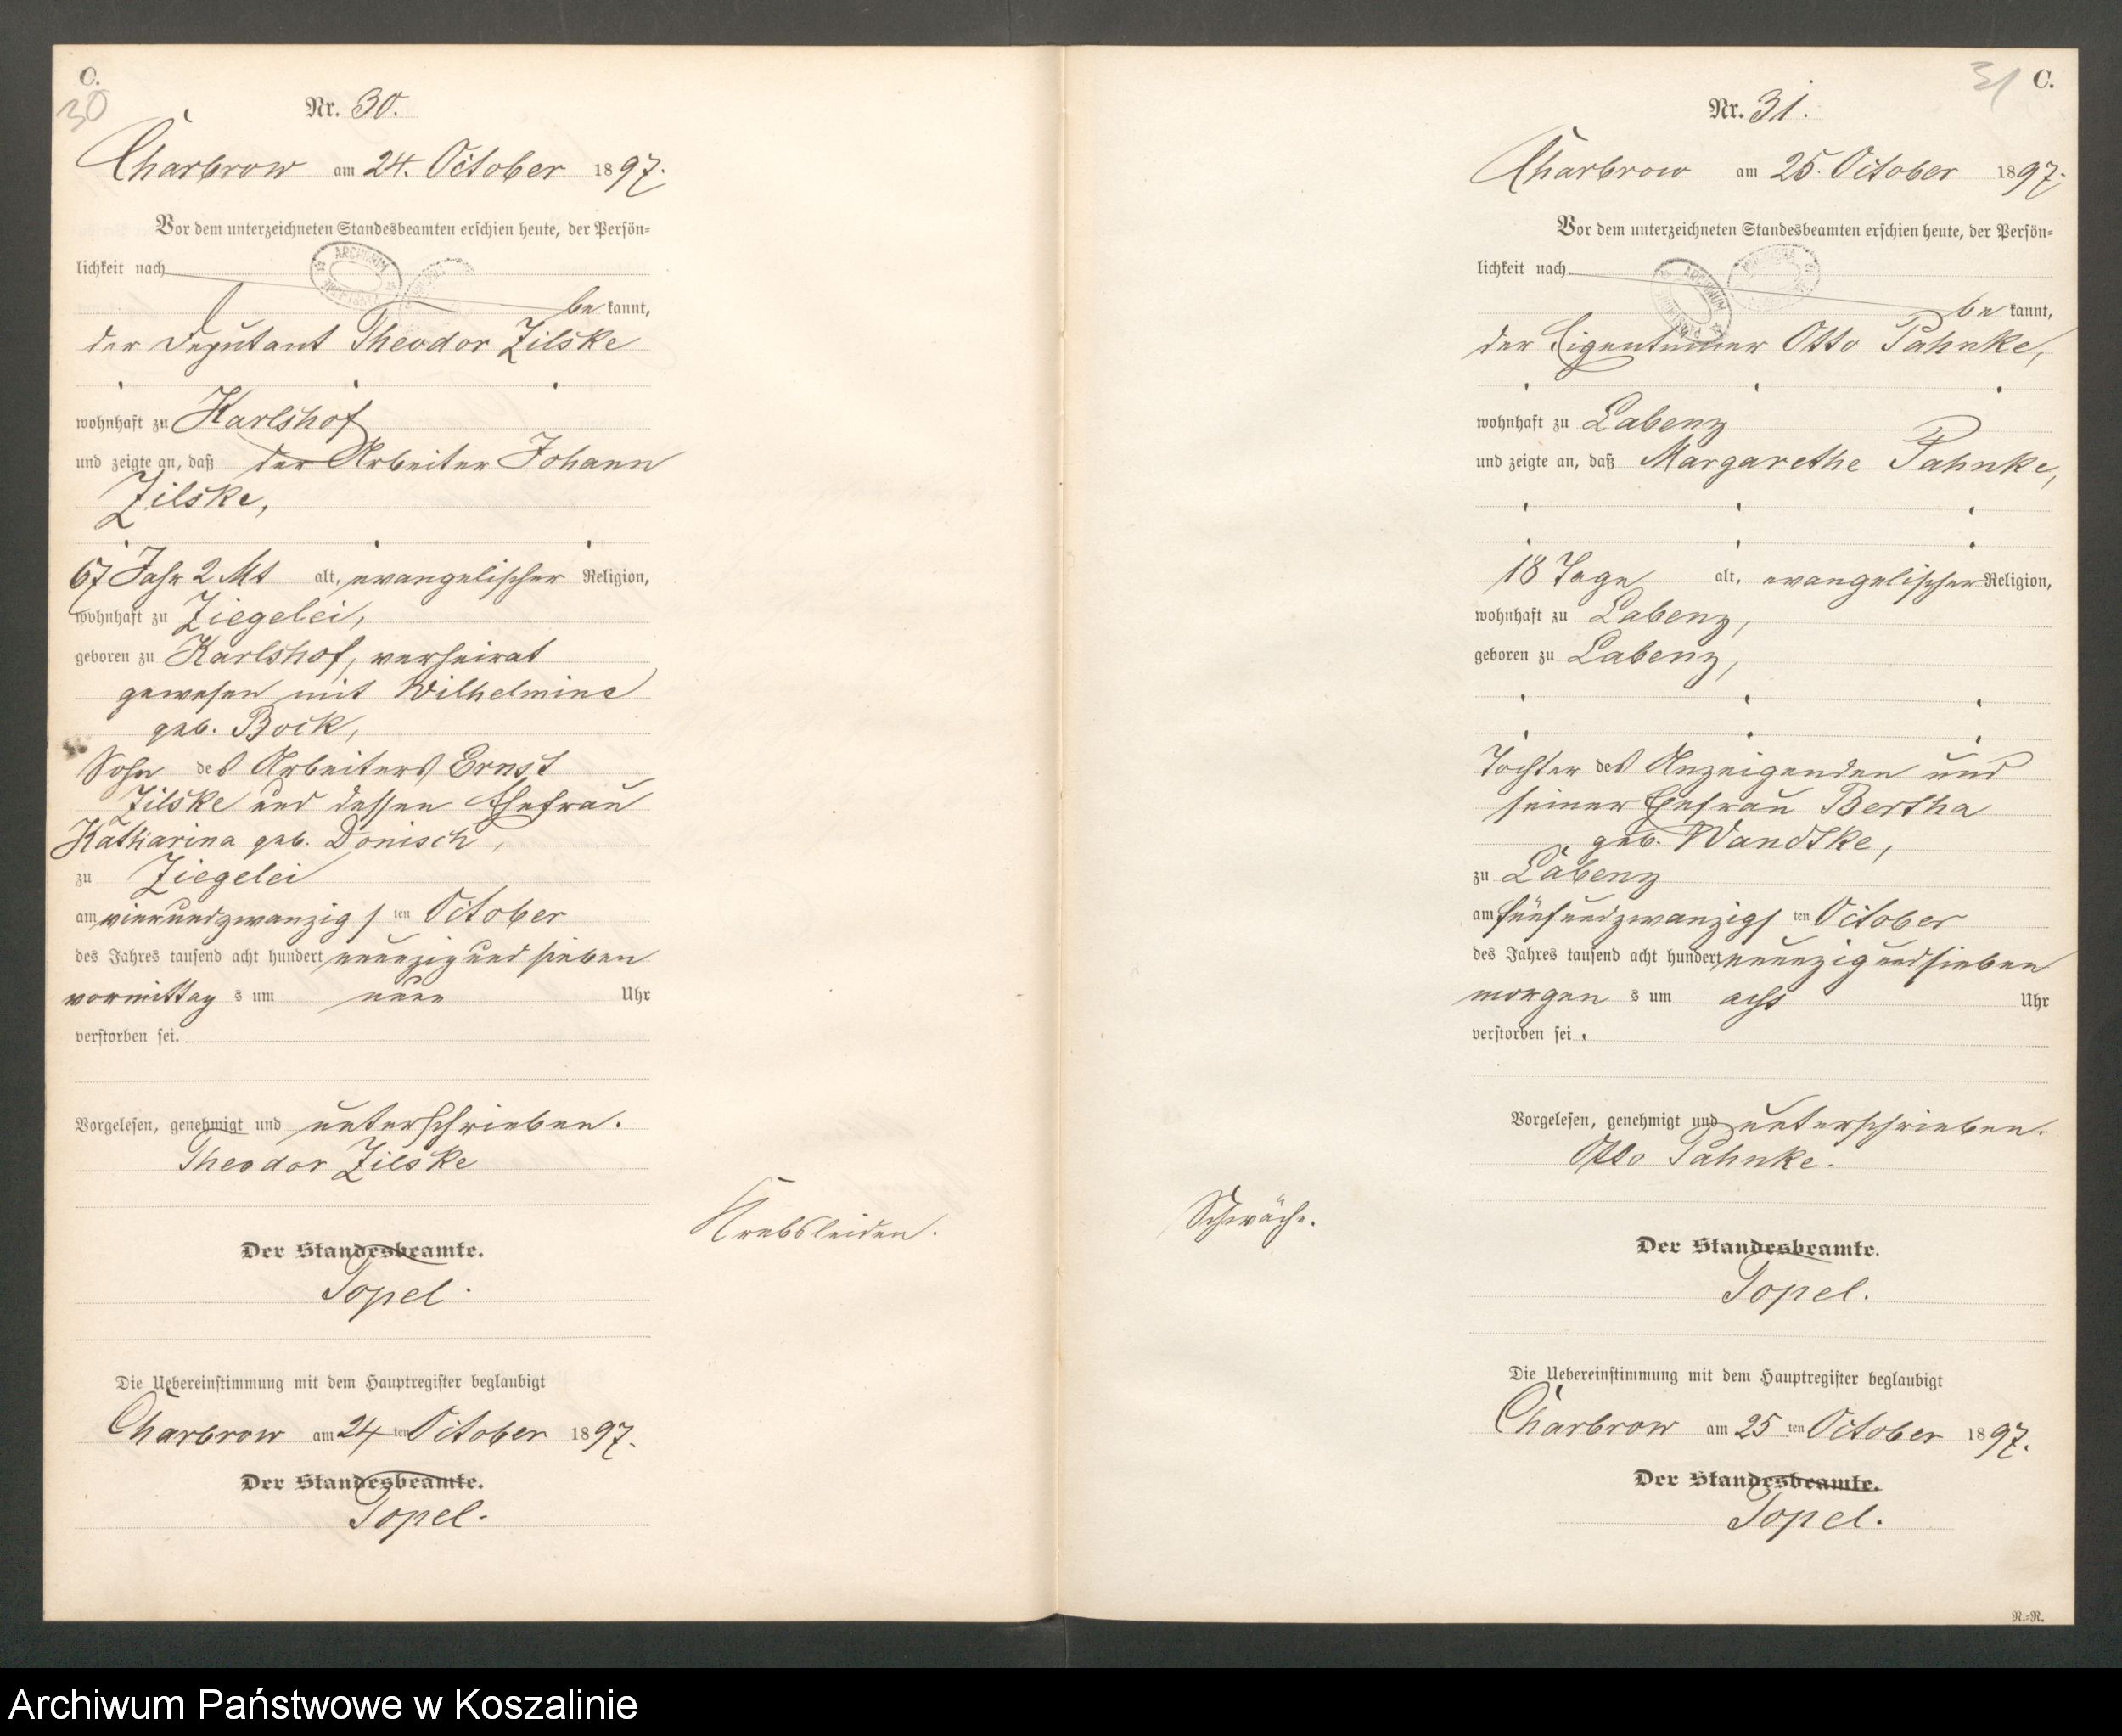 C.
30
Nr. 30.
Charbrow am 24. October 1897.
Vor dem unterzeichneten Standesbeamten erschien heute, der Persön=
lichkeit nach
ARCHIWUM
be kannt,
der Deputant Theodor Zilske
wohnhaft zu Karlshof
und zeigte an, daß der Arbeiter Johann
Zilske,
67 Jahr 2 Mt alt, evangelischer Religion,
wohnhaft zu Ziegelei,
geboren zu Karlshof, verheirat
gewesen mit Wilhelmine
geb. Bock,
Sohn des Arbeiters Ernst
Zilske und dessen Ehefrau
Katharina geb. Donisch,
zu Ziegelei
am vierundzwanzigsten October
des Jahres tausend acht hundert neunzig und sieben
vormittags um neun Uhr
verstorben sei.
Vorgelesen, genehmigt und unterschrieben.
Theodor Zilske
Krebsleiden.
Der Standesbeamte.
Topel.
Die Uebereinstimmung mit dem Hauptregister beglaubigt
Charbrow am 24 ten October 1897.
Der Standesbeamte.
Topel.
31 C.
Nr. 31.
Charbrow am 25. October 1897.
Vor dem unterzeichneten Standesbeamten erschien heute, der Persön=
lichkeit nach
ARCHIWUM
be kannt,
der Eigentümer Otto Pahnke,
wohnhaft zu Labenz
und zeigte an, daß Margarethe Pahnke,
18 Tage alt, evangelischer Religion,
wohnhaft zu Labenz,
geboren zu Labenz,
Tochter des Anzeigenden und
seiner Ehefrau Bertha
geb. Wandtke,
zu Labenz
am fünfundzwanzigsten October
des Jahres tausend acht hundert neunzig und sieben
morgens um acht Uhr
verstorben sei.
Vorgelesen, genehmigt und unterschrieben.
Otto Pahnke.
Schwäche.
Der Standesbeamte.
Topel.
Die Uebereinstimmung mit dem Hauptregister beglaubigt
Charbrow am 25 ten October 1897.
Der Standesbeamte.
Topel.
R.=R.
Archiwum Państwowe w Koszalinie